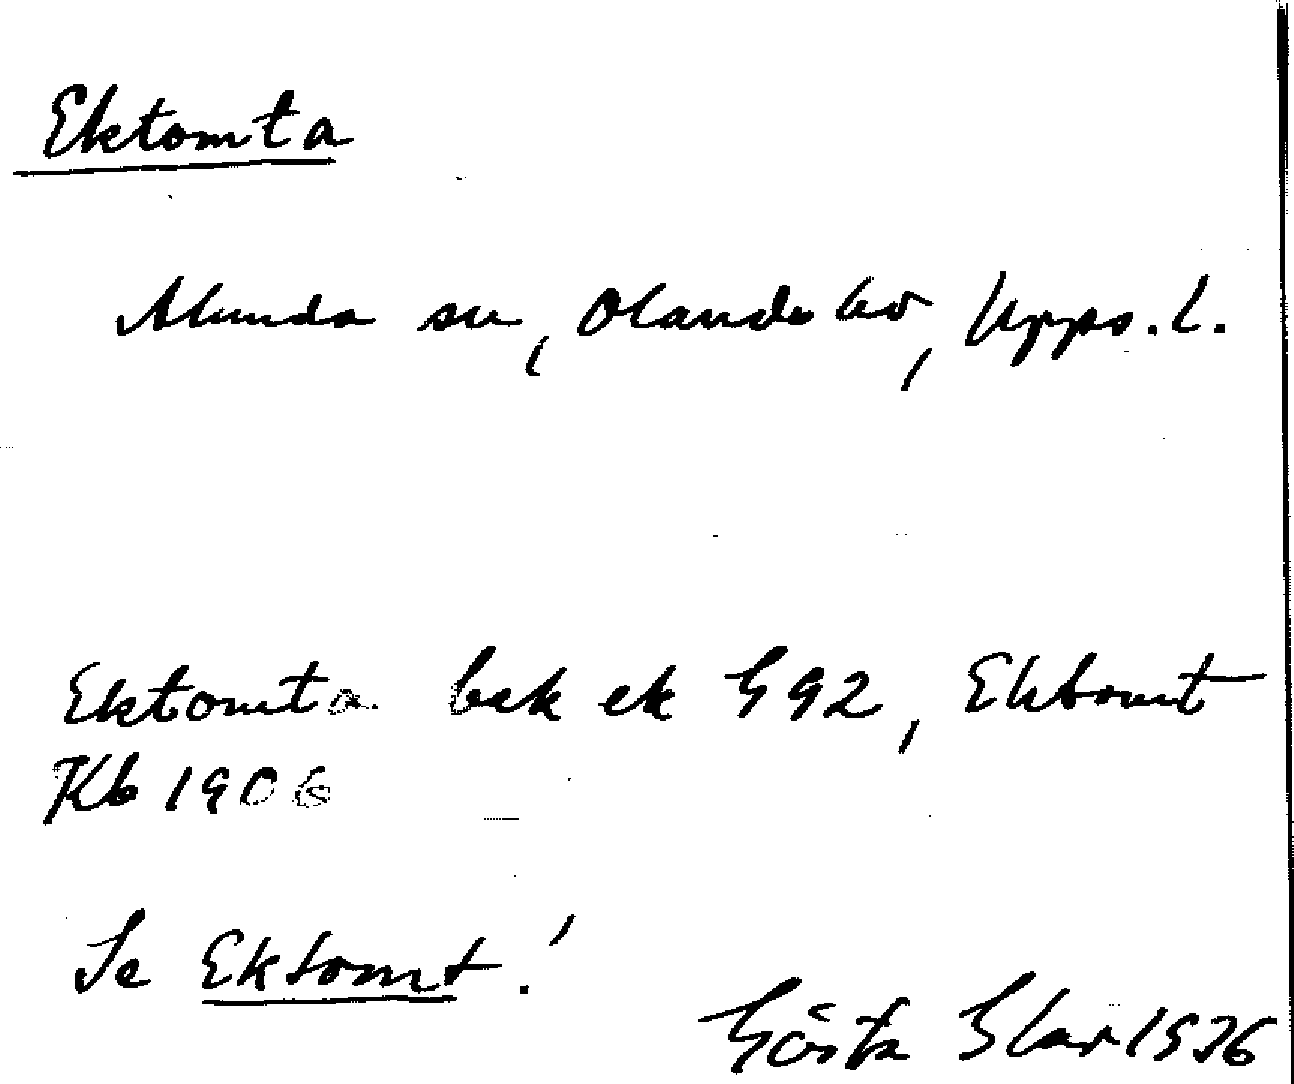 Ektomta
Alunda sn, Olands hd, Upps. l.
Ektomta bek ek G 92, Ektomt
Kb 1906
Se Ektomt!
Gösta 1936